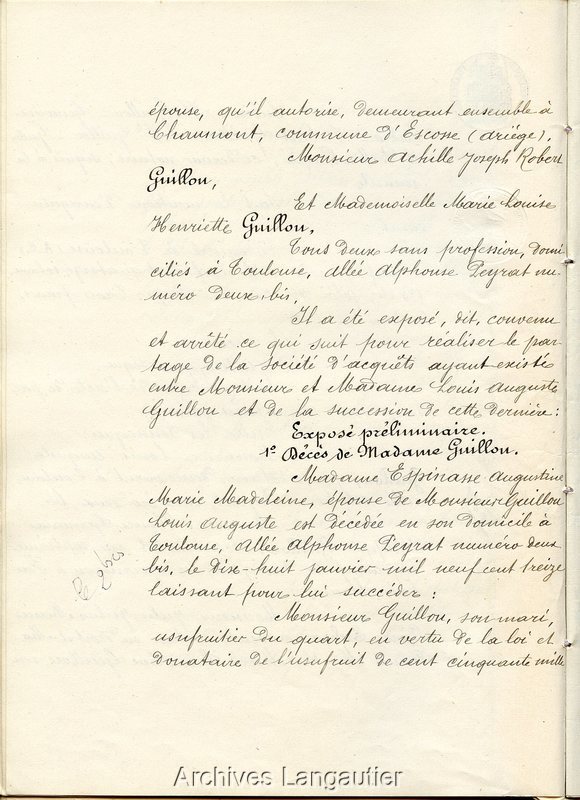 épouse, qu'il autorise, demeurant ensemble à
Chaumont, commune d'Escosse (Ariège),
Monsieur Achille Joseph Robert
Guillon,
Et Mademoiselle Marie Louise
Henriette Guillon,
Tous deux sans profession, domi
ciliés à Toulouse, allée Alphonse Peyrat nu
méro deux bis,
Il a été exposé, dit, convenu
et arrêté ce qui suit pour réaliser le par
tage de la société d'acquêts ayant existé
entre Monsieur et Madame Louis Auguste
Guillon et de la succession de cette dernière:
Exposé préliminaire.
1º Décès de Madame Guillon.
Madame Espinasse Augustine
Marie Madeleine, épouse de Monsieur Guillon
Louis Auguste est décédée en son domicile à
Toulouse, Allée Alphonse Peyrat numéro deux
bis, le dix-huit janvier mil neuf cent treize
laissant pour lui succéder:
Monsieur Guillon, son mari,
usufruitier du quart, en vertu de la loi et
donataire de l'usufruit de cent cinquante mille
Archives Langautier